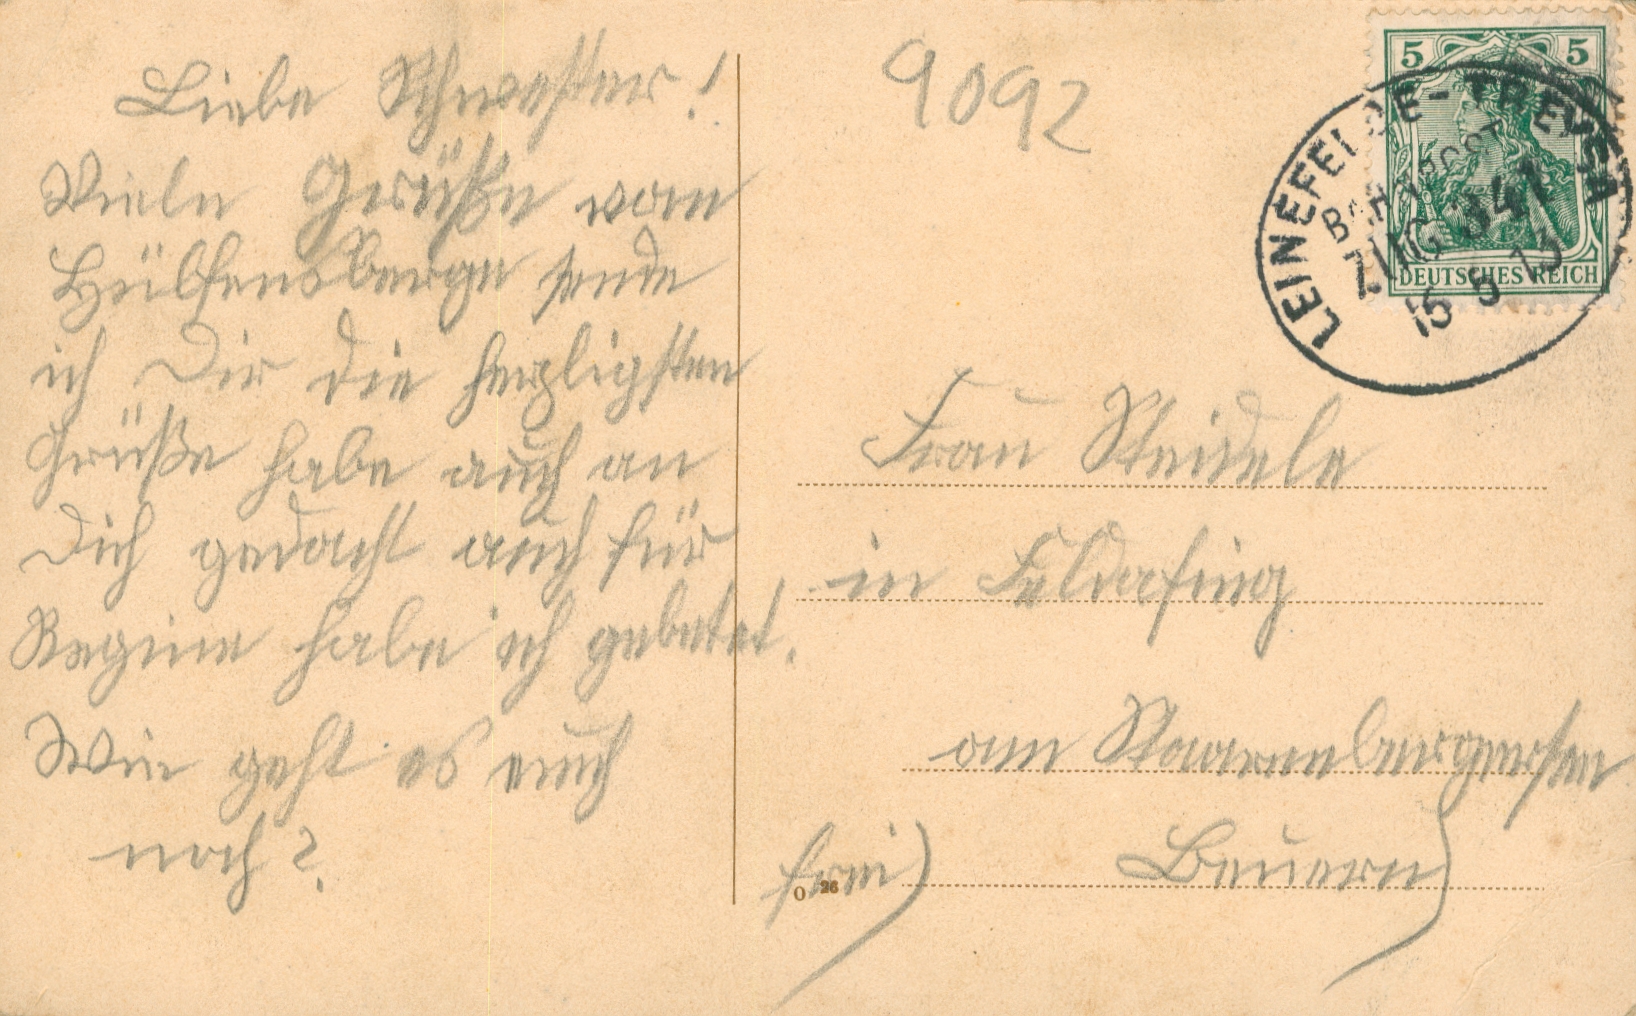 Liebe Schwester!
Viele Grüße vom
Hülfensberge sende
ich Dir die herzligsten
Grüße habe auch an
Dich gedacht auch für
Regine habe ich gebetet.
Wie geht es euch
noch?
9092
5 5
DEUTSCHES REICH
LEINEFELDE - TREYSA
BAHNPOST
ZUG 941
15 5 13
Frau Steidele
in Feldafing
am Staarenbergersee
frei) Beuern)
O 26